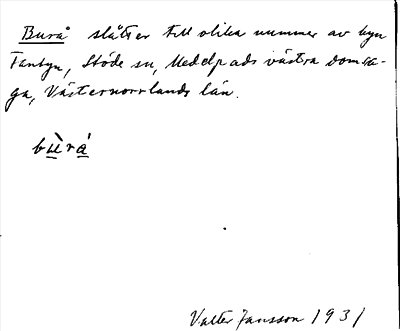 Burå slåtter till olika nummer av byn
Fanbyn, Stöde sn, Medelpads västra domsa-
ga, Västernorrlands län.
bùrá
Valter Jansson 1931